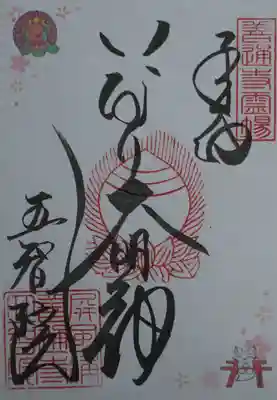 善通寺霊場
奉拝
いなり大明神
五智院